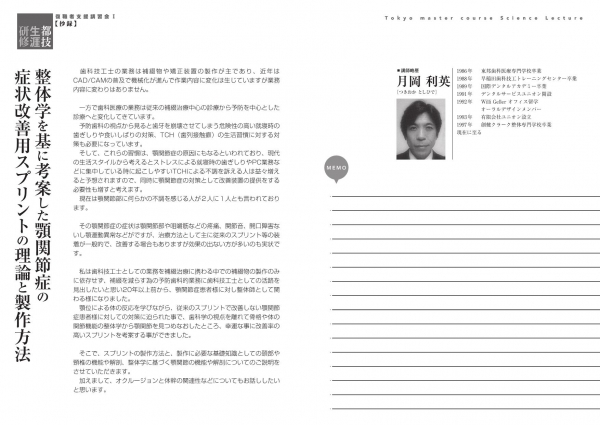 復職者支援講習会 I
【抄録】
都技
生涯
研修
整体学を基に考案した顎関節症の
症状改善用スプリントの理論と製作方法
歯科技工士の業務は補綴物や矯正装置の製作が主であり、近年は
CAD/CAMの普及で機械化が進んで作業内容に変化は生じていますが業務
内容に変わりはありません。
一方で歯科医療の業務は従来の補綴治療中心の診療から予防を中心とした
診療へと変化してきています。
予防歯科の視点から見ると歯牙を崩壊させてしまう危険性の高い就寝時の
歯ぎしりや食いしばりの対策、TCH（歯列接触癖）の生活習慣に対する対
策も必要になっています。
そして、これらの習慣は、顎関節症の原因にもなるといわれており、現代
の生活スタイルから考えるとストレスによる就寝時の歯ぎしりやPC業務な
どに集中している時に起こしやすいTCHによる不調を訴える人は益々増え
ると予想されますので、同時に顎関節症の対策として改善装置の提供をする
必要性も増すと考えます。
現在は顎関節部に何らかの不調を感じる人が2人に1人とも言われており
ます。
その顎関節症の症状は顎関節部や咀嚼筋などの疼痛、関節音、開口障害な
いし顎運動異常などがですが、治療方法として主に従来のスプリント等の装
着が一般的で、改善する場合もありますが効果の出ない方が多いのも実状で
す。
私は歯科技工士としての業務を補綴治療に携わる中での補綴物の製作のみ
に依存せず、補綴を減らす為の予防歯科的業務に歯科技工士としての活路を
見出したいと思い20年以上前から、顎関節症患者様に対し整体師として関
わる様になりました。
顎位による体の反応を学びながら、従来のスプリントで改善しない顎関節
症患者様に対しての対策に迫られた事で、歯科学の視点を離れて骨格や体の
関節機能の整体学から顎関節を見つめなおしたところ、幸運な事に改善率の
高いスプリントを考案する事ができました。
そこで、スプリントの製作方法と、製作に必要な基礎知識としての頭部や
頸椎の機能や解剖、整体学に基づく顎関節の機能や解剖についてのご説明を
させていただきます。
加えまして、オクルージョンと体幹の関連性などについてもお話ししたい
と思います。
Tokyo master course Science Lecture
●講師略歴
月岡 利英
［つきおか としひで］
1986年 東邦歯科医療専門学校卒業
1988年 早稲田歯科技工トレーニングセンター卒業
1990年 国際デンタルアカデミー卒業
1991年 デンタルサービスユニオン開設
1992年 With Geller オフィス留学
オーラルデザインメンバー
1993年 有限会社ユニオン設立
1997年 健眼クラーク整体専門学校卒業
現在に至る
MEMO